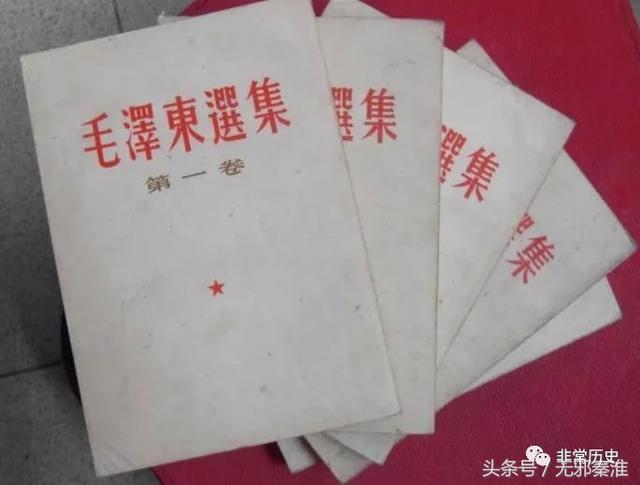 毛澤東選集
第一卷
選集
選集
選集
非常历史
头条号 / 无邪秦淮